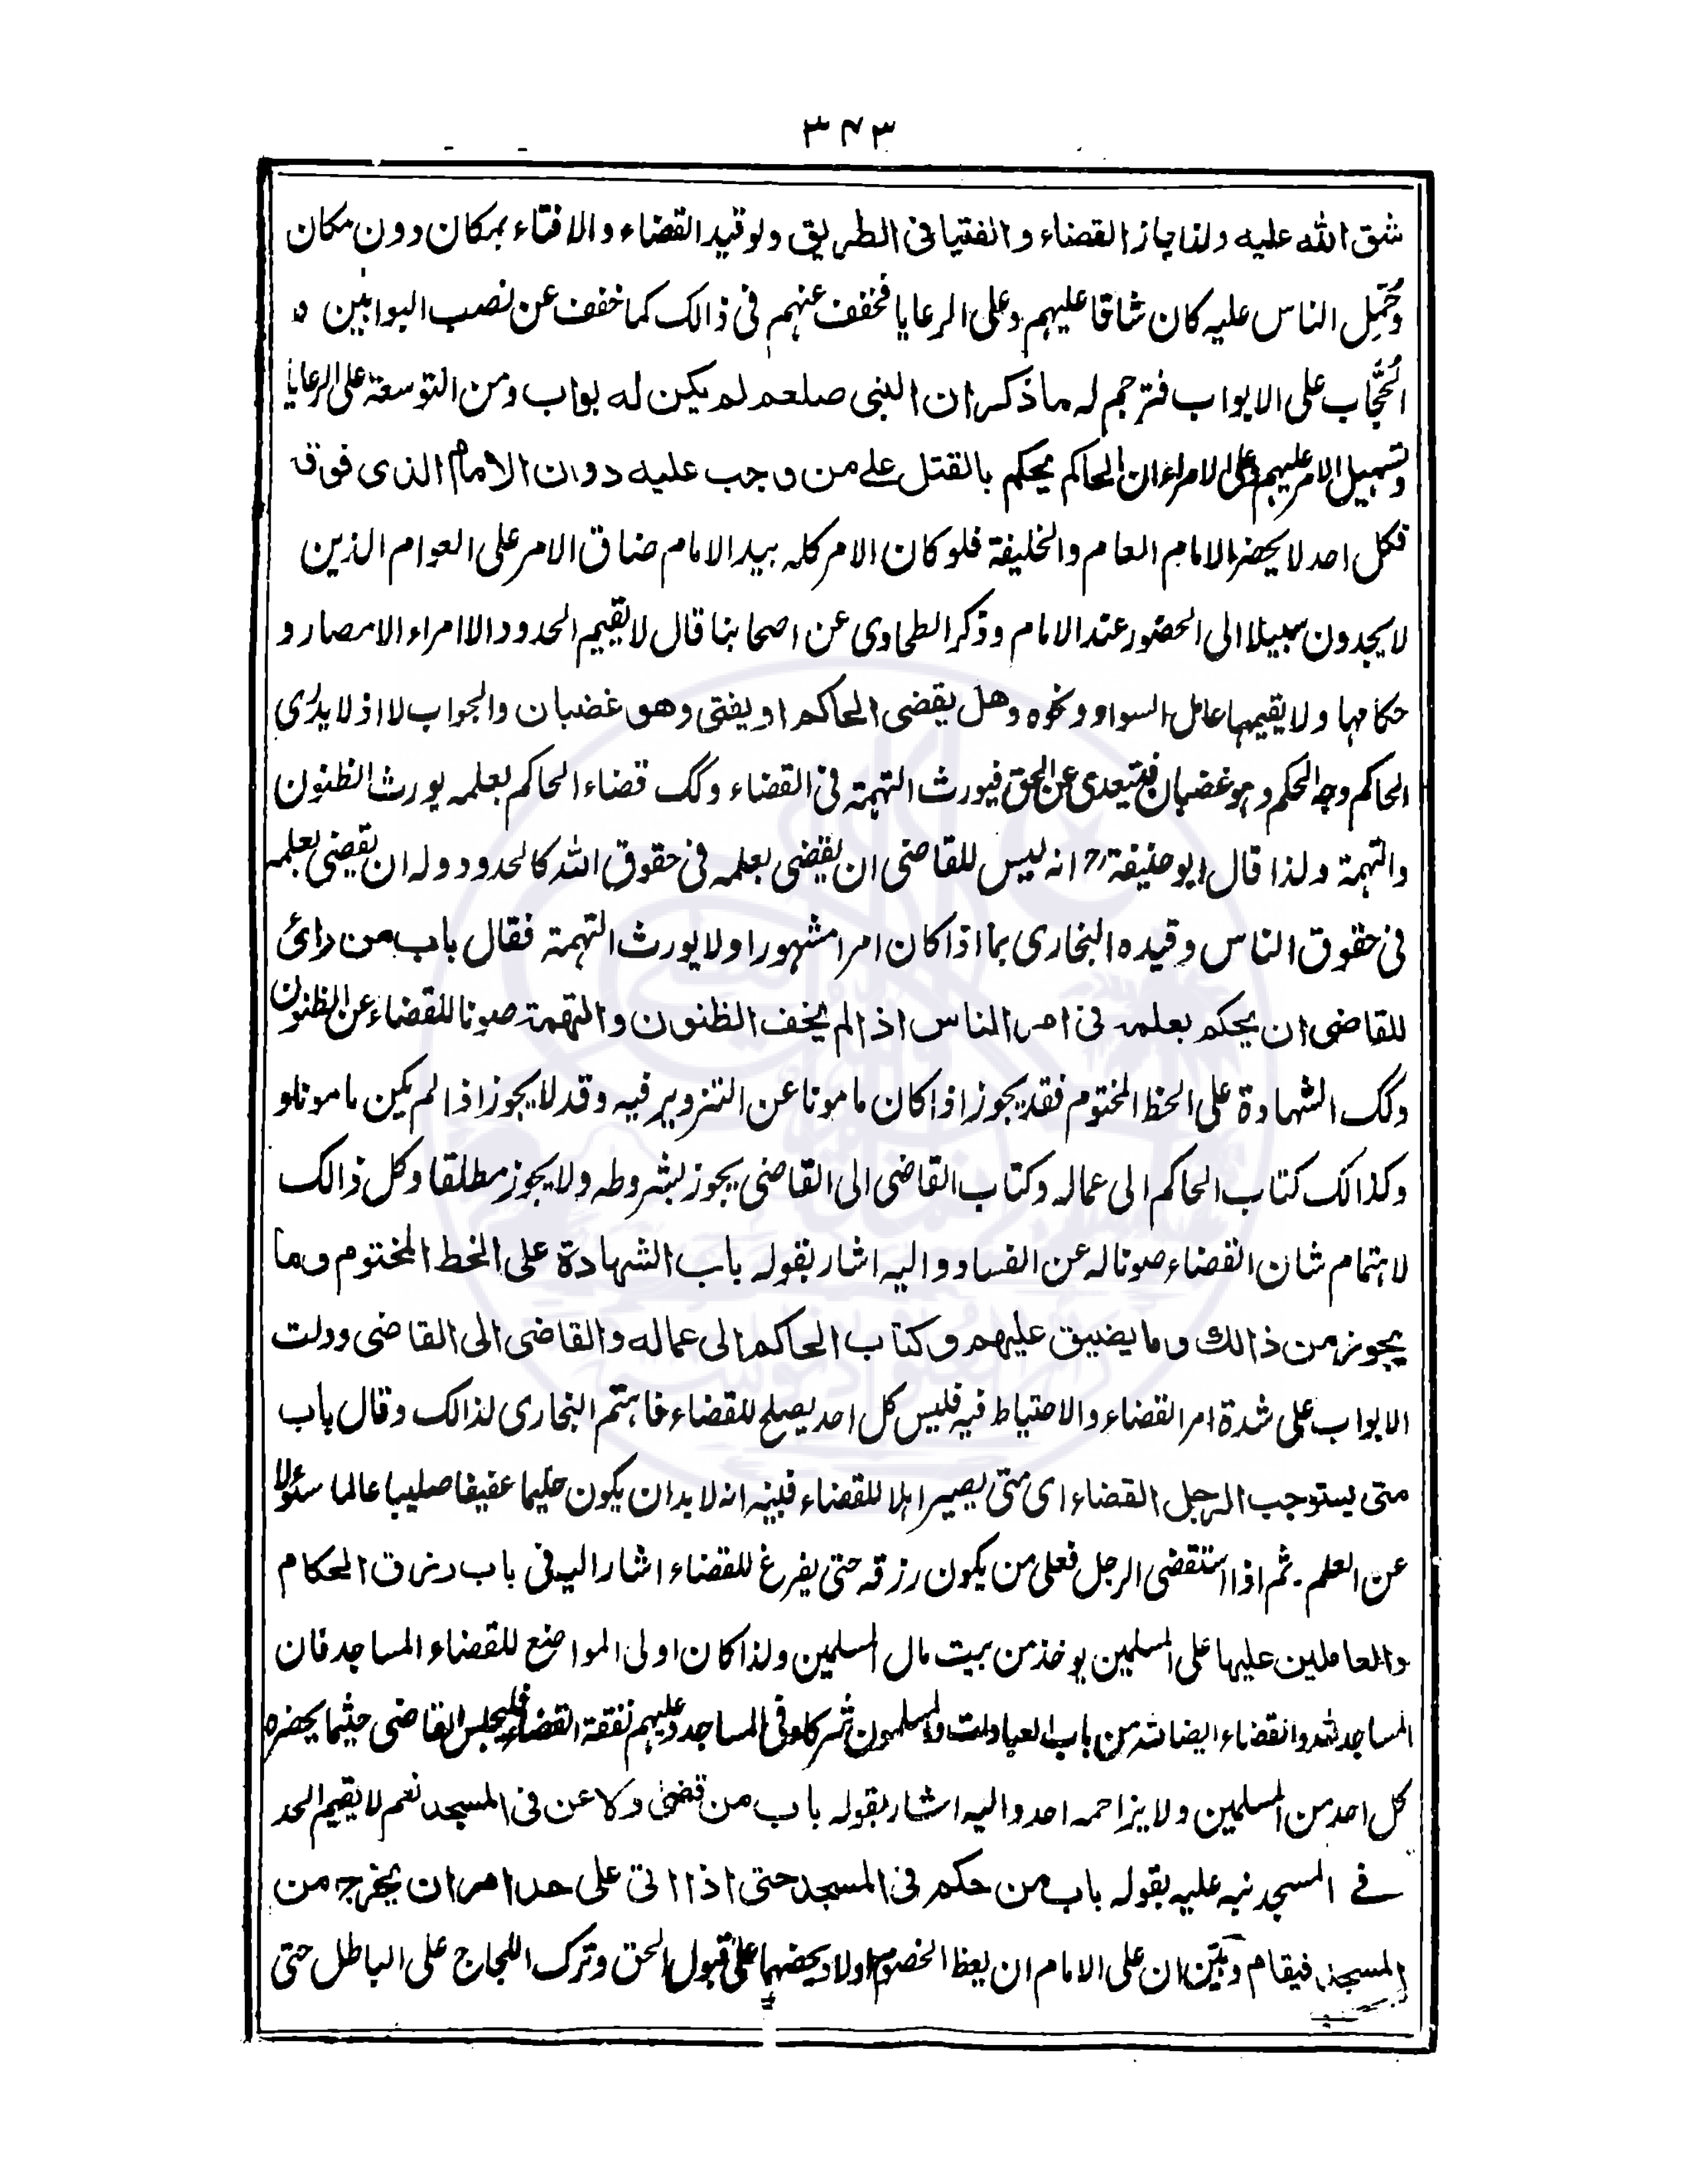 ٣٤٣
شق الله عليه ولذا جاز القضاء والفتيا فى الطريق ولو قيد القضاء والافتاء بمكان دون مكان
وحُمِّل الناس عليه كان شاقا عليهم وعلى الرعايا فخفف عنهم فى ذالك كما خفف عن نصب البوابين و
الحُجَّاب على الابواب فترجم له ما ذكر ان النبى صلعم لم يكن له بواب ومن التوسعة على الرعايا
وتسهيل الامر عليهم وعلى الامراء ان الحاكم يحكم بالقتل على من وجب عليه دون الامام الذى فوقه
فكل احد لا يحضر الامام العام والخليفة فلو كان الامر كله بيد الامام ضاق الامر على العوام الذين
لا يجدون سبيلا الى الحضور عند الامام وذكر الطحاوى عن اصحابنا قال لا يقيم الحدود الا امراء الامصار و
حكامها ولا يقيمها عامل السواد ونحوه وهل يقضى الحاكم او يفتى وهو غضبان والجواب لا اذ لا يدرى
الحاكم وجه الحكم وهو غضبان فيتعدى عن الحق فيورث التهمة فى القضاء وكك قضاء الحاكم بعلمه يورث الظنون
والتهمة ولذا قال ابو حنيفة رح انه ليس للقاضى ان يقضى بعلمه فى حقوق الله كالحدود وله ان يقضى بعلمه
فى حقوق الناس وقيده البخارى بما اذا كان امرا مشهورا ولا يورث التهمة فقال باب من رائ
للقاضى ان يحكم بعلمه فى امر الناس اذا لم يخف الظنون والتهمة صونا للقضاء عن الظنون
وكك الشهادة على الخط المختوم فقد يجوز اذا كان مامونا عن التزوير فيه وقد لا يجوز اذا لم يكن مامونا و
وكذالك كتاب الحاكم الى عماله وكتاب القاضى الى القاضى يجوز بشروطه ولا يجوز مطلقا وكل ذالك
لاهتمام شان القضاء صونا له عن الفساد واليه اشار بقوله باب الشهادة على الخط المختوم وما
يجوز من ذالك وما يضيق عليهم وكتاب الحاكم الى عماله والقاضى الى القاضى ودلت
الابواب على شدة امر القضاء والاحتياط فيه فليس كل احد يصلح للقضاء فاهتم البخارى لذالك وقال باب
متى يستوجب الرجل القضاء اى متى يصير اهلا للقضاء فبينه انه لابد ان يكون حليما عفيفا صليبا عالما سئولا
عن العلم. ثم اذا استقضى الرجل فعلى من يكون رزقه حتى يفرغ للقضاء اشار اليه فى باب رزق الحكام
والعاملين عليها على المسلمين يوخذ من بيت مال المسلمين ولذا كان اولى المواضع للقضاء المساجد فان
المساجد لله والقضاء ايضا لله من باب العبادات والمسلمون شركاء فى المساجد وعليهم نفقة القضاء فليجلس القاضى حيثما يحضره
كل احد من المسلمين ولا يزاحمه احد واليه اشار بقوله باب من قضى ولاعن فى المسجد نعم لا يقيم الحد
فى المسجد نبه عليه بقوله باب من حكم فى المسجد حتى اذا اتى على حد امر ان يخرج من
المسجد فيقام وبَيَّن ان على الامام ان يعظ الخصوم اولا ويحضهما على قبول الحق وترك اللجاج على الباطل حتى